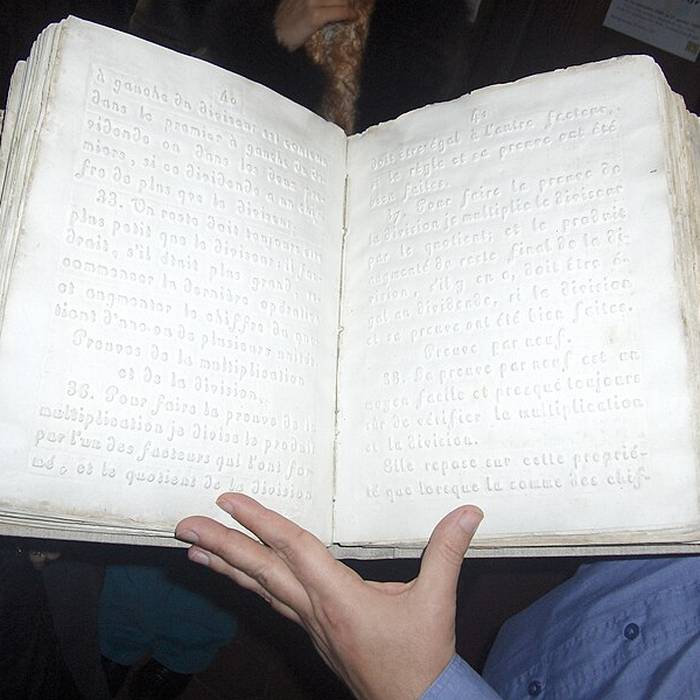 40
à gauche du diviseur est contenu
dans le premier à gauche du di
vidende ou dans les deux pre
miers, si ce dividende a un chif
fre de plus que le diviseur.
33. Un reste doit toujours être
plus petit que le diviseur; il fau
drait, s'il était plus grand, re
commencer la dernière opération
et augmenter le chiffre du quo
tient d'une ou de plusieurs unités
Preuves de la multiplication
et de la division.
36. Pour faire la preuve de la
multiplication je divise le produit
par l'un des facteurs qui l'ont for
mé, et le quotient de la division
doit être égal à l'autre facteur,
si la règle et sa preuve ont été
bien faites.
37. Pour faire la preuve de
la division je multiplie le diviseur
par le quotient; et le produit
augmenté du reste final de la di-
vision, s'il y en a, doit être é-
gal au dividende, si la division
et sa preuve ont été bien faites.
Preuve par neuf.
38. La preuve par neuf est un
moyen facile et presque toujours
sûr de vérifier la multiplication
et la division.
Elle repose sur cette proprié-
té que lorsque la somme des chif-